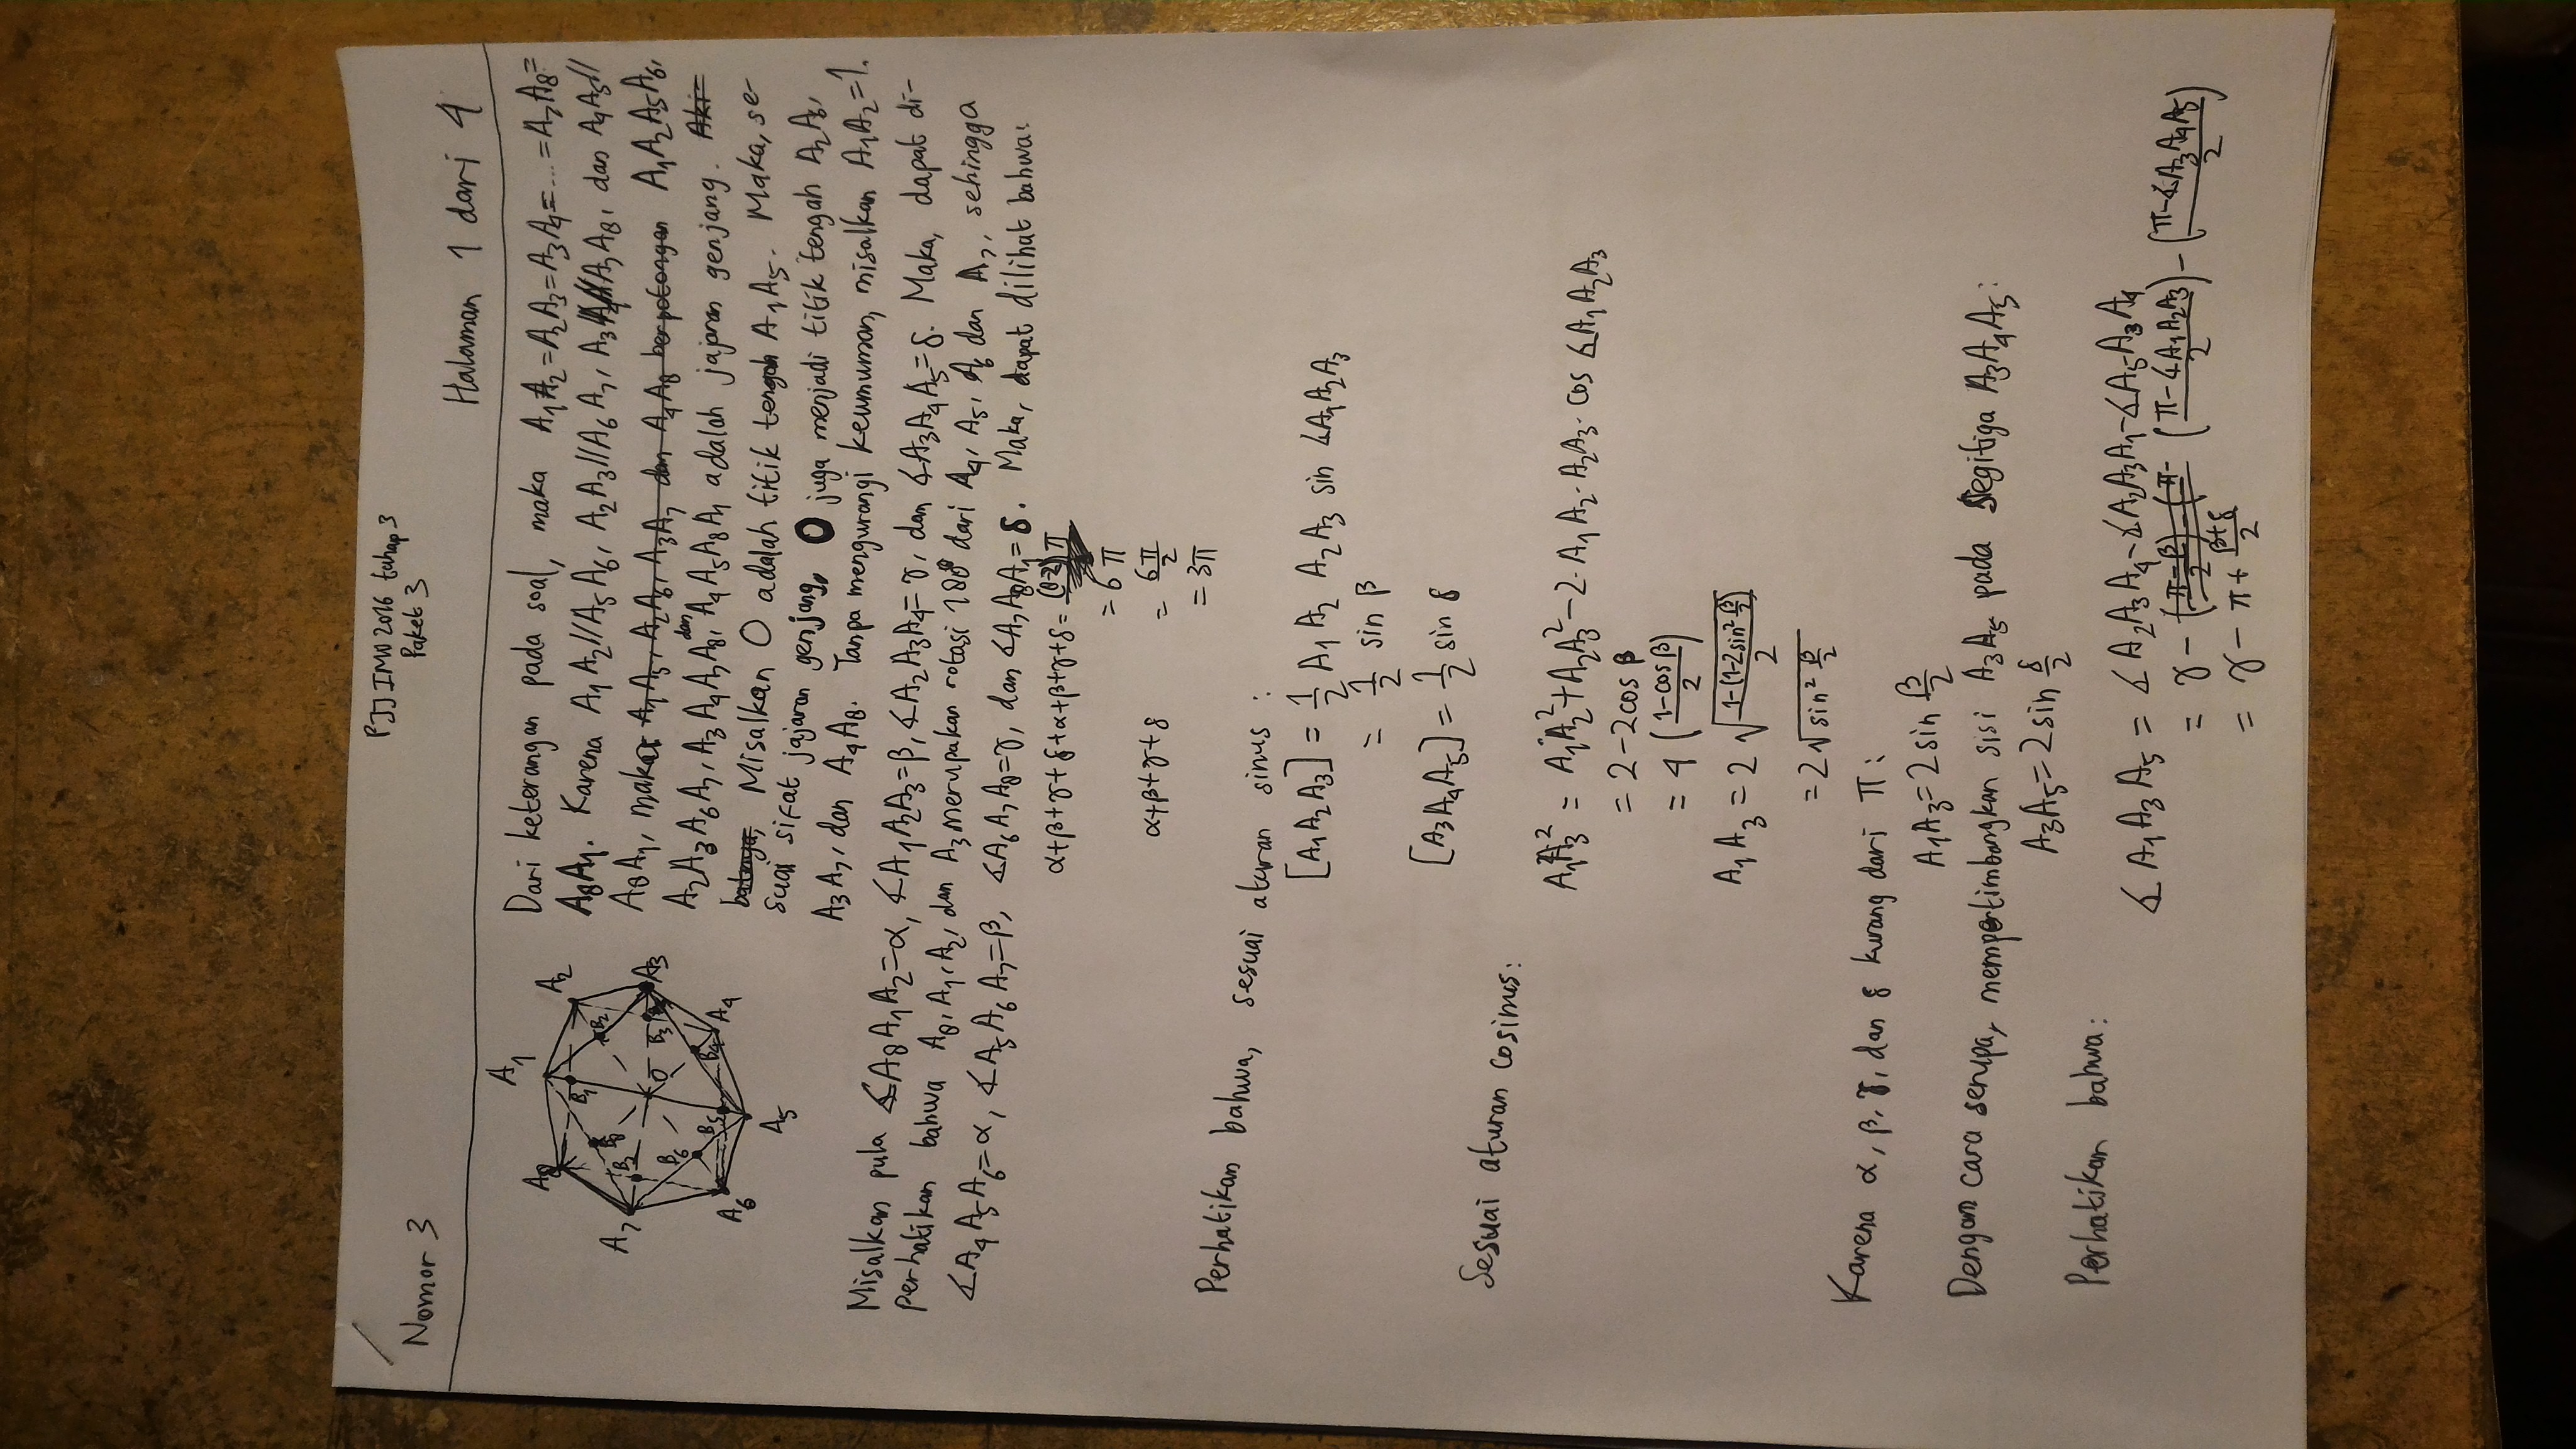 PJJ IMO 2016 tahap 3
Paket 3
Nomor 3
Halaman 1 dari 4
A₁
A₈
A₂
B₁
B₂
A₇
B₇
B₈
O
B₃
A₃
B₆
B₅
B₄
A₆
A₄
A₅
Dari keterangan pada soal, maka A₁A₂=A₂A₃=A₃A₄=...=A₇A₈=
A₈A₁. Karena A₁A₂//A₅A₆, A₂A₃//A₆A₇, A₃A₄//A₇A₈, dan A₄A₅//
A₈A₁, maka A₁A₅, A₂A₆, A₃A₇ dan A₄A₈ berpotongan A₁A₂A₅A₆,
A₂A₃A₆A₇, A₃A₄A₇A₈, dan A₄A₅A₈A₁ adalah jajaran genjang. Aki-
batnya, Misalkan O adalah titik tengah A₁A₅. Maka, se-
suai sifat jajaran genjang, O juga menjadi titik tengah A₂A₆,
A₃A₇, dan A₄A₈. Tanpa mengurangi keumuman, misalkan A₁A₂=1.
Misalkan pula ∡A₈A₁A₂=α, ∡A₁A₂A₃=β, ∡A₂A₃A₄=γ, dan ∡A₃A₄A₅=δ. Maka, dapat di-
perhatikan bahwa A₈, A₁, A₂, dan A₃ merupakan rotasi 180° dari A₄, A₅, A₆ dan A₇, sehingga
∡A₄A₅A₆=α, ∡A₅A₆A₇=β, ∡A₆A₇A₈=γ, dan ∡A₇A₈A₁=δ. Maka, dapat dilihat bahwa:
α+β+γ+δ+α+β+γ+δ=(8-2)π
=6π
α+β+γ+δ = 6π/2
= 3π
Perhatikan bahwa, sesuai aturan sinus :
[A₁A₂A₃] = 1/2 A₁A₂ A₂A₃ sin ∡A₁A₂A₃
= 1/2 sin β
[A₃A₄A₅] = 1/2 sin δ
Sesuai aturan cosinus:
A₁A₃² = A₁A₂²+A₂A₃²-2·A₁A₂·A₂A₃·cos ∡A₁A₂A₃
= 2-2cos β
= 4 ((1-cos β)/2)
A₁A₃ = 2 √((1-(1-2sin² β/2))/2)
= 2√(sin² β/2)
Karena α, β, γ, dan δ kurang dari π :
A₁A₃=2 sin β/2
Dengan cara serupa, mempertimbangkan sisi A₃A₅ pada segitiga A₃A₄A₅:
A₃A₅=2 sin δ/2
Perhatikan bahwa:
∡A₁A₃A₅ = ∡A₂A₃A₄-∡A₂A₃A₁-∡A₅A₃A₄
= γ - (π-β)/2 - (π- ((π-∡A₁A₂A₃)/2) - ((π-∡A₃A₄A₅)/2)
= γ - π + (β+δ)/2